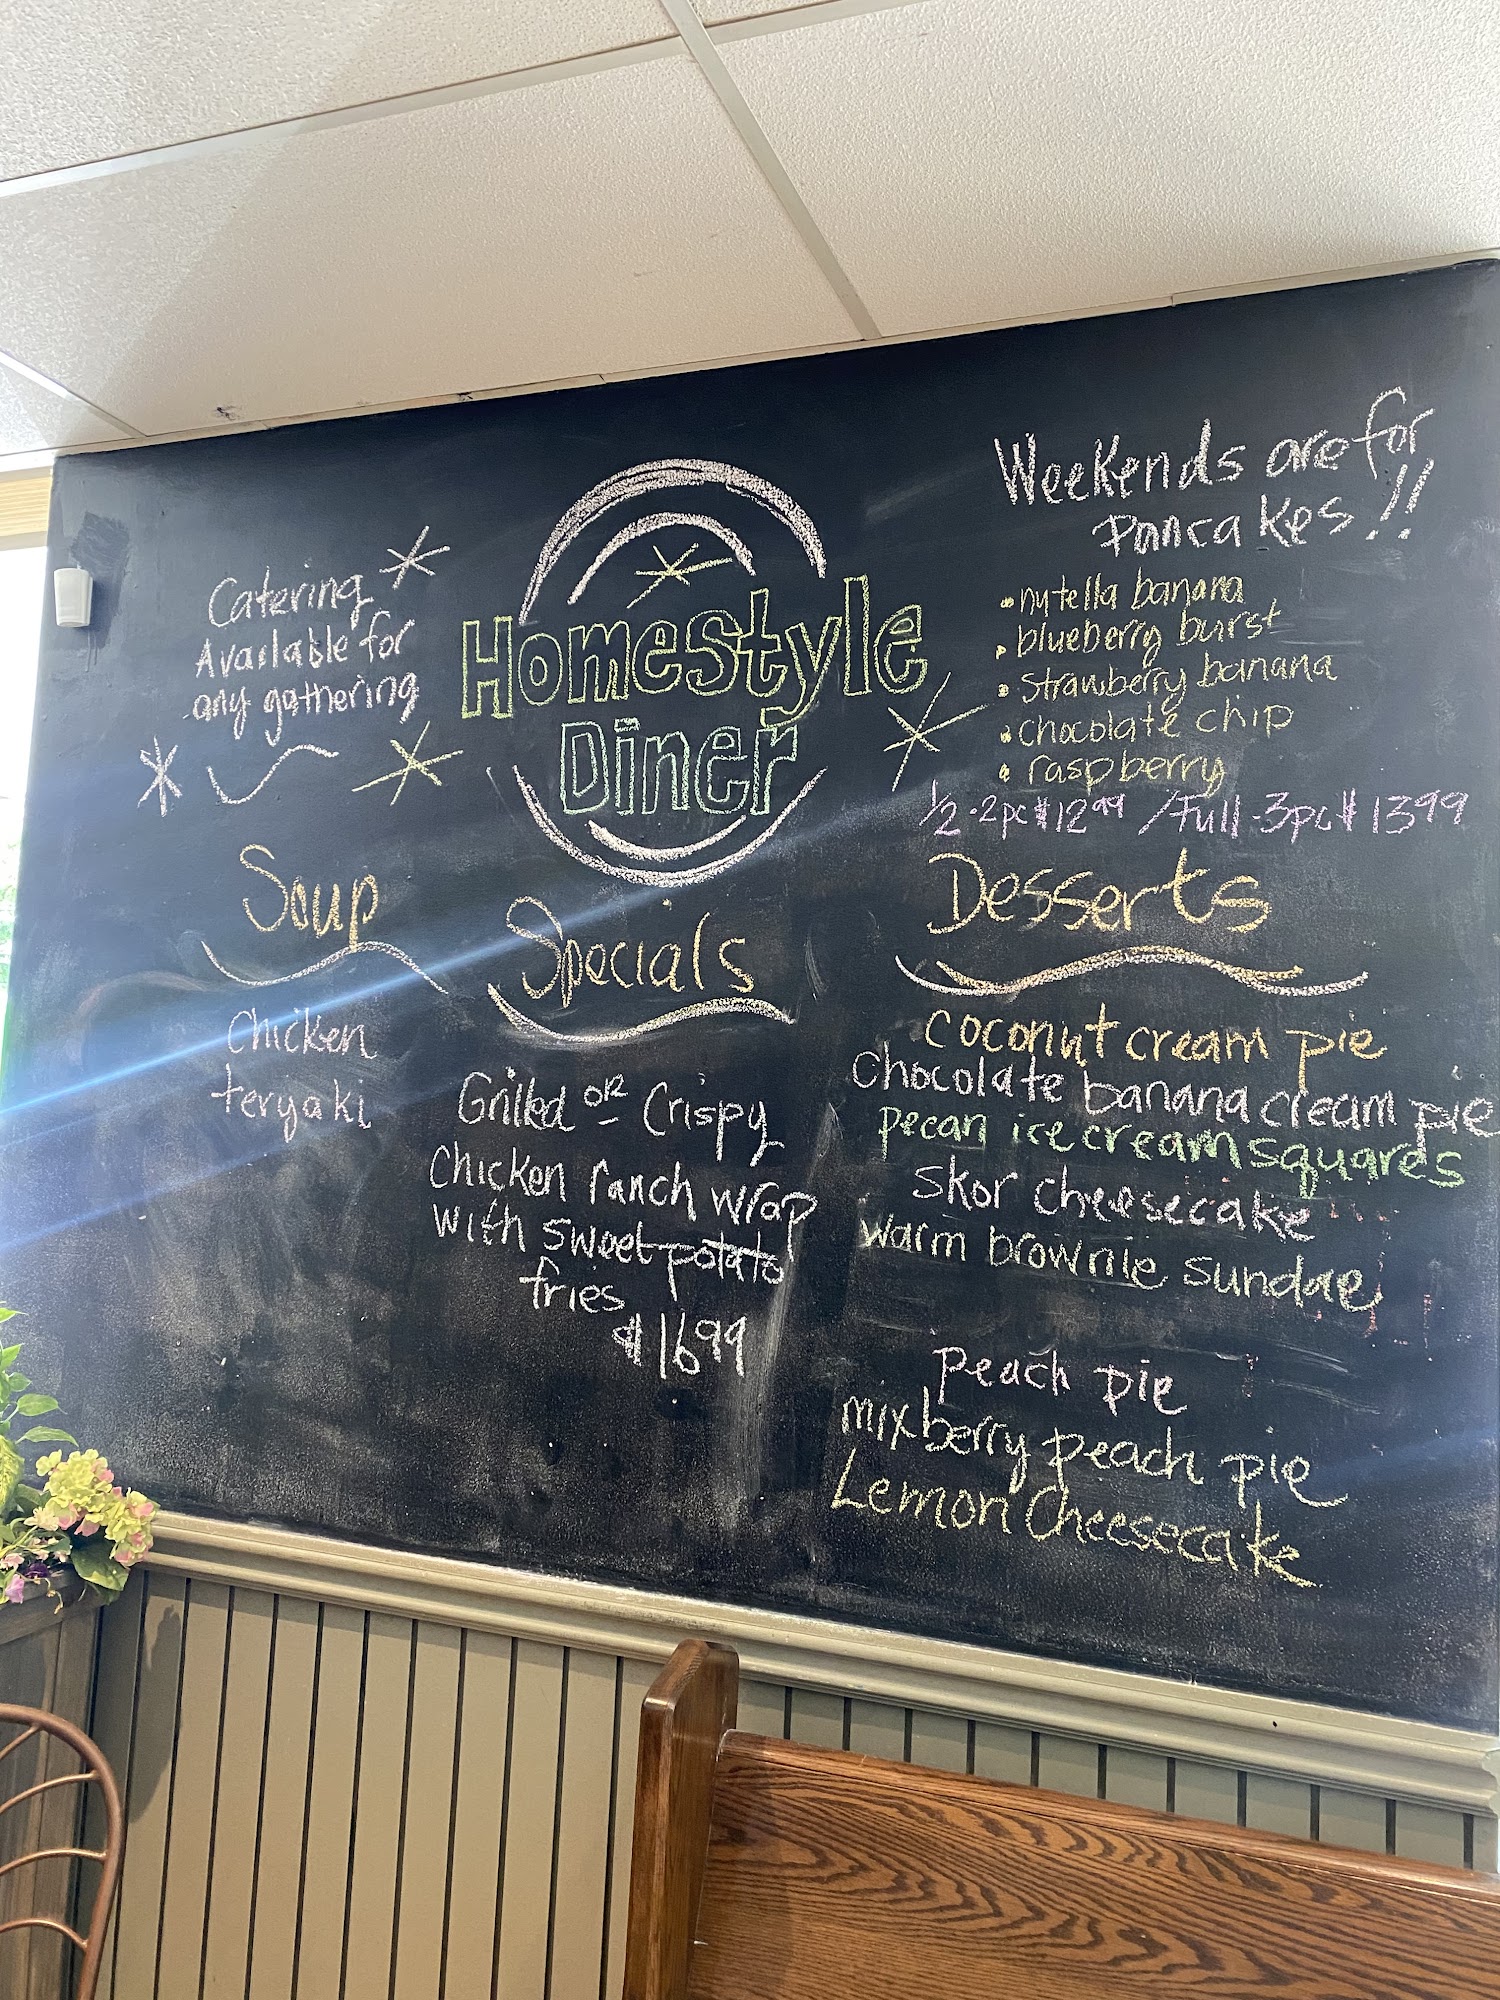 Catering
Available for
any gathering
Homestyle
Diner
Weekends are for
pancakes!!
• nutella banana
• blueberry burst
• strawberry banana
• chocolate chip
• raspberry
1/2 - 2pc $12.99 / Full - 3pc $13.99
Soup
Chicken
teryaki
Specials
Grilled OR Crispy
Chicken ranch wrap
with sweet potato
fries
$16.99
Desserts
coconut cream pie
chocolate banana cream pie
pecan ice cream squares
Skor cheesecake
warm brownie sundae
peach pie
mixberry peach pie
Lemon Cheesecake